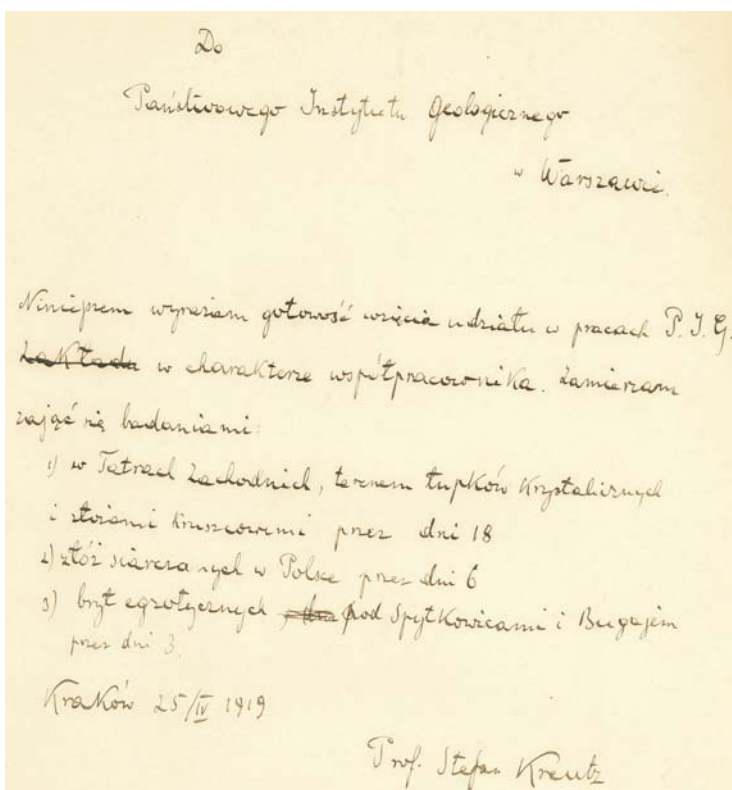 Do
Państwowego Instytutu Geologicznego
w Warszawie.
Niniejszem wyrażam gotowość wzięcia udziału w pracach P. I. G.
Zakładu w charakterze współpracownika. Zamierzam
zająć się badaniami:
1) w Tatrach Zachodnich, terenem łupków krystalicznych
i złożami kruszcowemi przez dni 18
2) złóż siarczanych w Polsce przez dni 6
3) brył egzotycznych pod Spytkowicami i Bugajem
przez dni 3.
Kraków 25/IV 1919
Prof. Stefan Kreutz